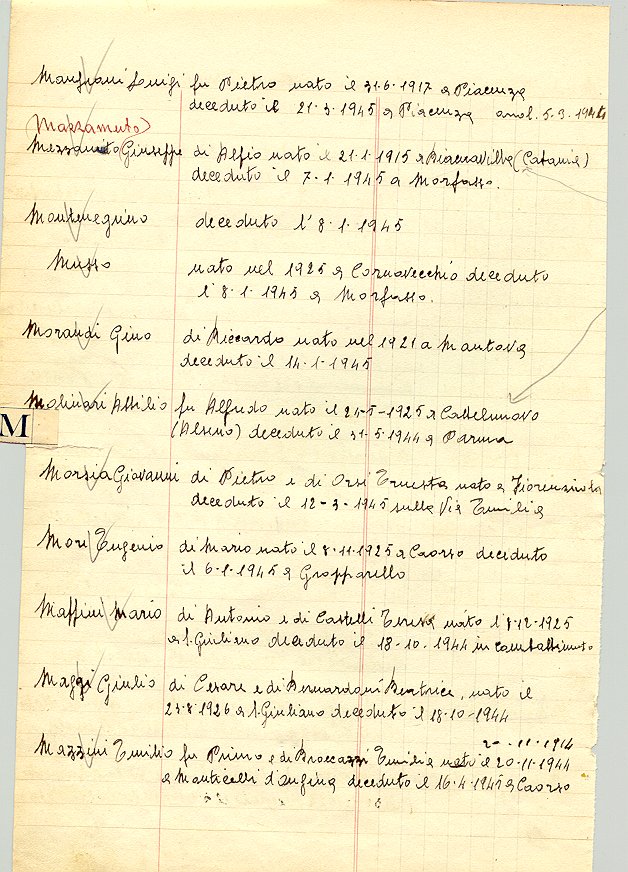 Manfiani Luigi fu Pietro nato il 31·6·1917 a Piacenza
deceduto il 21·3·1945 a Piacenza and. 5.3.1944
(Mazzamuto)
Mezzamito Giuseppe di Alfio nato il 21·1·1915 a Biancavilla (Catania)
deceduto il 7·1·1945 a Morfasso.
Montenegrino deceduto l'8·1·1945
Musso nato nel 1925 a Cornavecchio deceduto
l'8·1·1945 a Morfasso.
Morandi Gino di Riccardo nato nel 1921 a Mantova
deceduto il 14·1·1945
Molinari Attilio fu Alfredo nato il 24-5-1925 a Castelnuovo
M
deceduto il 31·5·1944 a Parma
Morsia Giovanni di Pietro e di Orsi Ernesta nato a Fiorenzuola
deceduto il 12-3-1945 sulla Via Emilia
Mori Eugenio di Mario nato il 8·11·1925 a Caorso deceduto
il 6·1·1945 a Gropparello
Maffini Mario di Antonio e di Castelli Teresa nato l'8·12·1925
a S. Giuliano deceduto il 18-10-1944 in combattimento
Maggi Giulio di Cesare e di Bernardoni Beatrice, nato il
23·8·1926 a S. Giuliano deceduto il 18·10-1944
20-11-1914
Mazzini Emilio fu Primo e di Broccazzi Emilia nato il 20·11·1944
a Monticelli d'Ongina deceduto il 16·4·1945 a Caorso